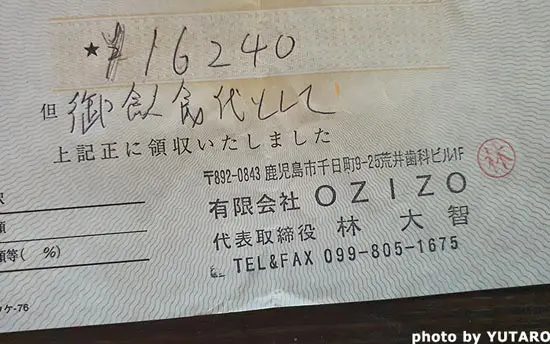 ★¥16240
但 御飲食代として
上記正に領収いたしました
〒892-0843 鹿児島市千日町9-25荒井歯科ビル1F
有限会社 OZIZO
代表取締役 林 大智
林
TEL&FAX 099-805-1675
額
額等( %)
ウケ-76
photo by YUTARO